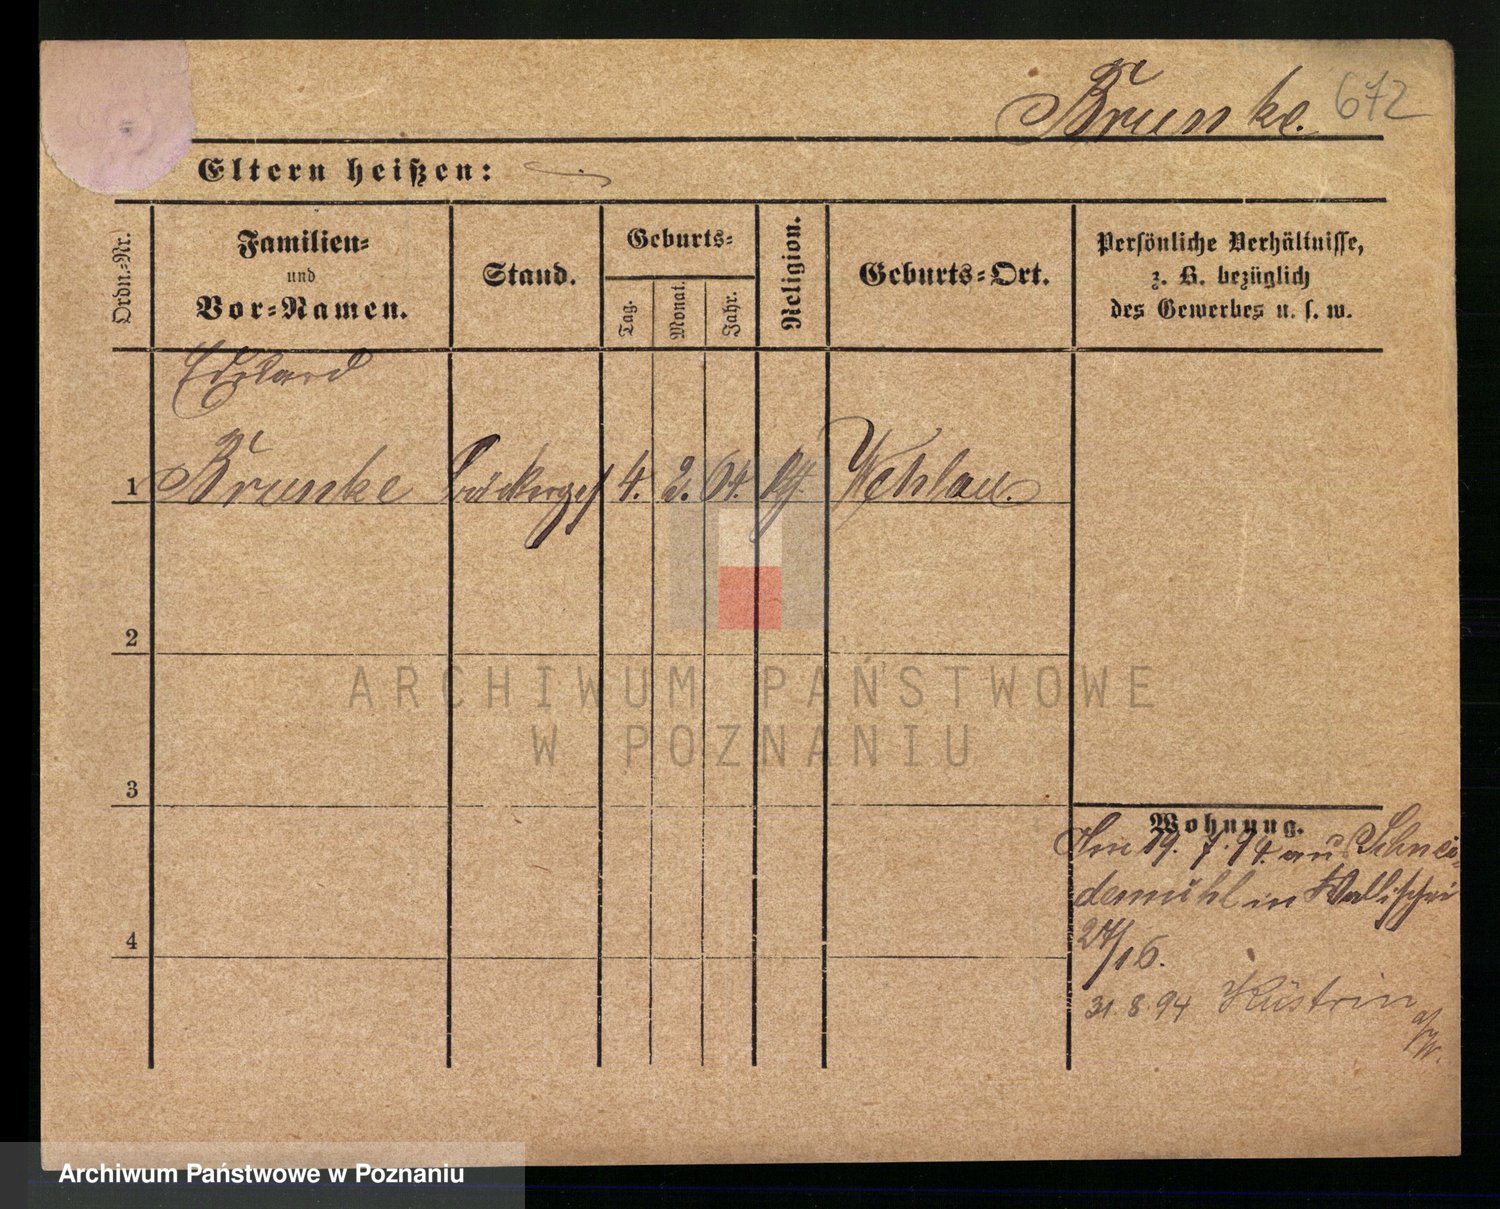 Brunke. 672
Eltern heißen: —
Ordn.-Nr.
Familien-
und
Vor-Namen.
Stand.
Geburts-
Tag.
Monat.
Jahr.
Religion.
Geburts-Ort.
Persönliche Verhältnisse,
z. B. bezüglich
des Gewerbes u. s. w.
Eduard
1 Brunke 4. 2. 64. Wehlau.
2
3
4
Wohnung.
19. 7. 94. aus Schnei-
demühl in Wallischei
27/16.
31. 8. 94 Küstrin
ARCHIWUM PAŃSTWOWE
W POZNANIU
Archiwum Państwowe w Poznaniu